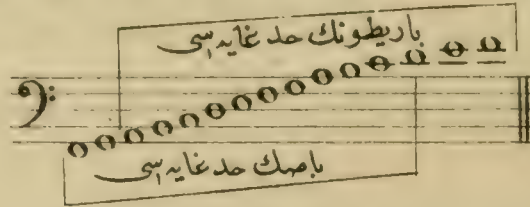 باریطونك حد غایه‌سی
باصك حد غایه‌سی